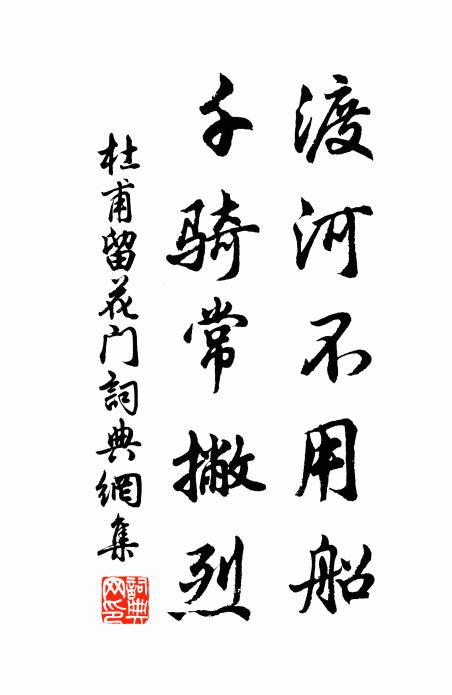 渡河不用船
千骑常撇烈
杜甫留花门词典網集
詞典网印